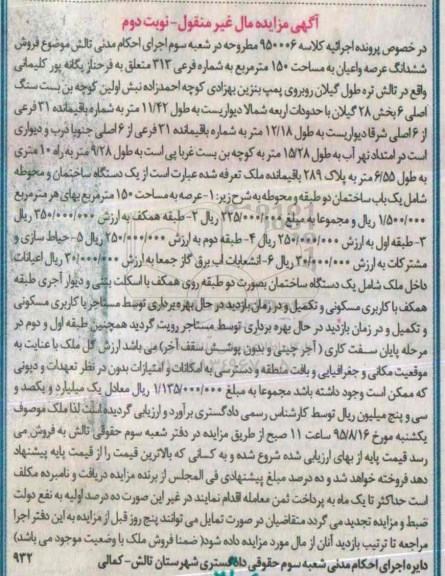 آگهی مزایده مال غیر منقول - نوبت دوم
در خصوص پرونده اجرائیه کلاسه ۹۵۰۰۰۶ مطروحه در شعبه سوم اجرای احکام مدنی تالش موضوع فروش
ششدانگ عرصه واعیان به مساحت ۱۵۰ مترمربع به شماره فرعی ۳۱۳ متعلق به فرحناز یگانه پور کلیمانی
واقع در تالش تره طول گیلان روبروی پمپ بنزین بهزادی کوچه احمدزاده نبش اولین کوچه بن بست سنگ
اصلی ۶ بخش ۲۸ گیلان با حدودات اربعه شمالا دیواریست به طول ۱۱/۴۲ متر به شماره باقیمانده ۳۱ فرعی
از ۶ اصلی شرقا دیواریست به طول ۱۲/۱۸ متر به شماره باقیمانده ۳۱ فرعی از ۶ اصلی جنوبا درب و دیواری
است در امتداد نهر آب به طول ۱۵/۲۸ متر به کوچه بن بست غربا پی است به طول ۹/۲۸ متر به راه ۱۰ متری
به طول ۶/۵۵ متر به پلاک ۲۸۹ باقیمانده ملک تعرفه شده عبارت است از یک دستگاه ساختمان و محوطه
شامل یک باب ساختمان دو طبقه و محوطه به شرح زیر: ۱- عرصه به مساحت ۱۵۰ مترمربع بهای هر مترمربع
۱/۵۰۰/۰۰۰ ریال و مجموعا به مبلغ ۲۲۵/۰۰۰/۰۰۰ ریال ۲- طبقه همکف به ارزش ۳۵۰/۰۰۰/۰۰۰ ریال
۳- طبقه اول به ارزش ۲۵۰/۰۰۰/۰۰۰ ریال ۴- طبقه دوم به ارزش ۲۵۰/۰۰۰/۰۰۰ ریال ۵- حیاط سازی و
مشترکات به ارزش ۳۰/۰۰۰/۰۰۰ ریال ۶- انشعابات آب برق گاز جمعا به ارزش ۳۰/۰۰۰/۰۰۰ ریال اعیانات
داخل ملک شامل یک دستگاه ساختمان بصورت دو طبقه روی همکف با اسکلت بتنی و دیوار آجری طبقه
همکف با کاربری مسکونی و تکمیل و در زمان بازدید در حال بهره برداری توسط مستاجر با کاربری مسکونی
و تکمیل و در زمان بازدید در حال بهره برداری توسط مستاجر رویت گردید همچنین طبقه اول و دوم در
مرحله پایان سفت کاری (آجر چینی و بدون پوشش سقف آخر) می باشد ارزش کل ملک با عنایت به
موقعیت مکانی و جغرافیایی و بافت منطقه و دسترسی به امکانات و امتیازات بدون در نظر تعهدات و دیونی
که ممکن است وجود داشته باشد مجموعا به مبلغ ۱/۱۳۵/۰۰۰/۰۰۰ ریال معادل یک میلیارد و یکصد و
سی و پنج میلیون ریال توسط کارشناس رسمی دادگستری برآورد و ارزیابی گردیده است لذا ملک موصوف
یکشنبه مورخ ۹۵/۸/۱۶ ساعت ۱۱ صبح از طریق مزایده در دفتر شعبه سوم حقوقی تالش به فروش می
رسد قیمت پایه از بهای ارزیابی شده شروع شده و به کسانی که بالاترین قیمت را از قیمت پایه پیشنهاد
دهد فروخته خواهد شد و ده درصد مبلغ پیشنهادی فی المجلس از برنده مزایده دریافت و نامبرده مکلف
است حداکثر تا یک ماه به پرداخت ثمن معامله اقدام نمایند در غیر این صورت ده درصد اولیه به نفع دولت
ضبط و مزایده تجدید می گردد متقاضیان در صورت تمایل می توانند پنج روز قبل از مزایده به این دفتر اجرا
مراجعه تا ترتیب بازدید آنان از مال مورد مزایده داده شود( ضمنا فروش ملک با وضعیت موجود می باشد)
دایره اجرای احکام مدنی شعبه سوم حقوقی دادگستری شهرستان تالش - کمالی ۹۳۲